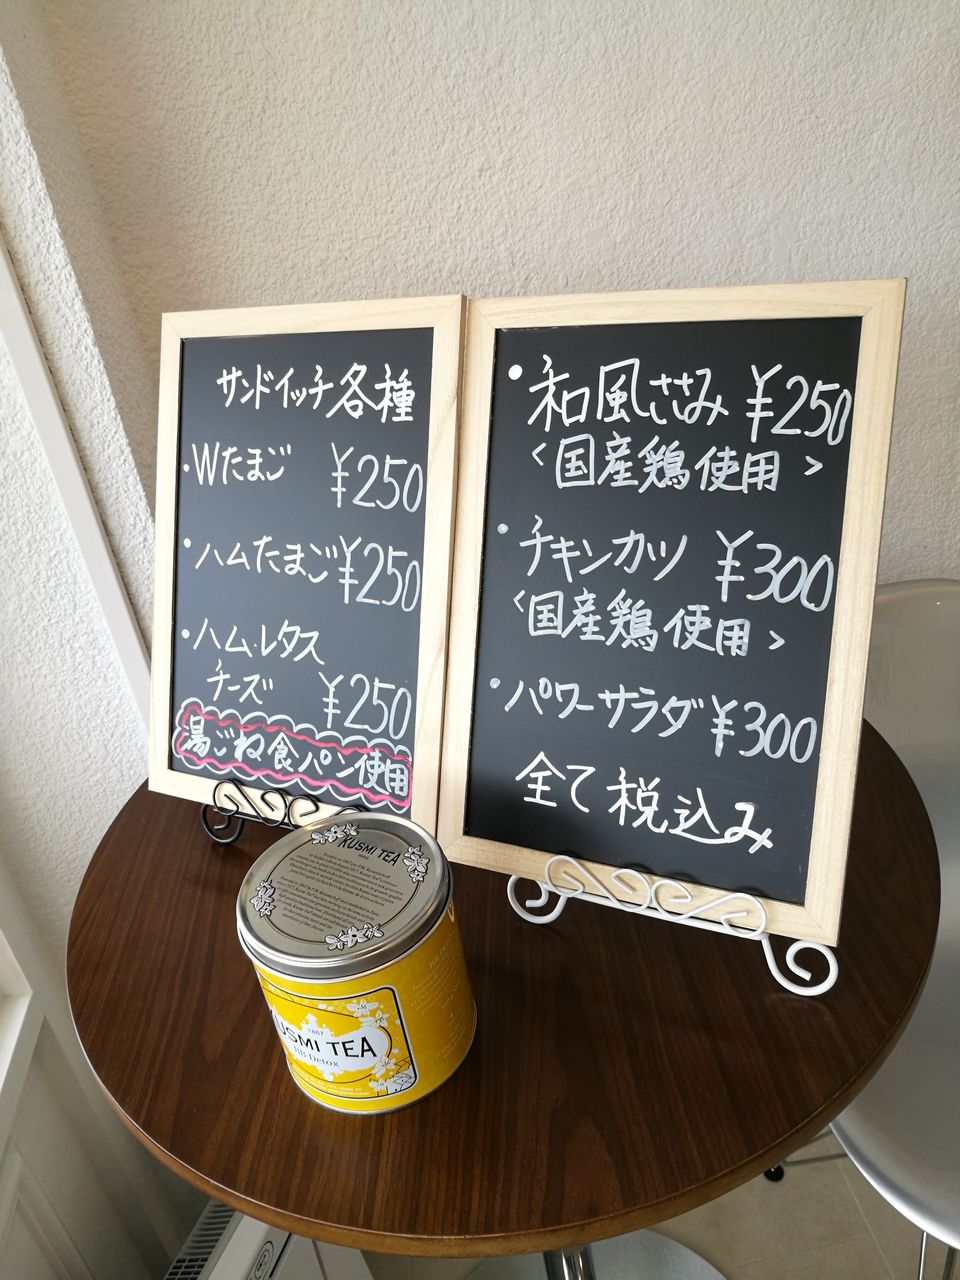 サンドイッチ各種
・Wたまご ¥250
・ハムたまご ¥250
・ハム・レタス
チーズ ¥250
湯ごね食パン使用
・和風ささみ ¥250
<国産鶏使用>
・チキンカツ ¥300
<国産鶏使用>
・パワーサラダ ¥300
全て税込み
KUSMI TEA
PARIS
1867
KUSMI TEA
BB Detox